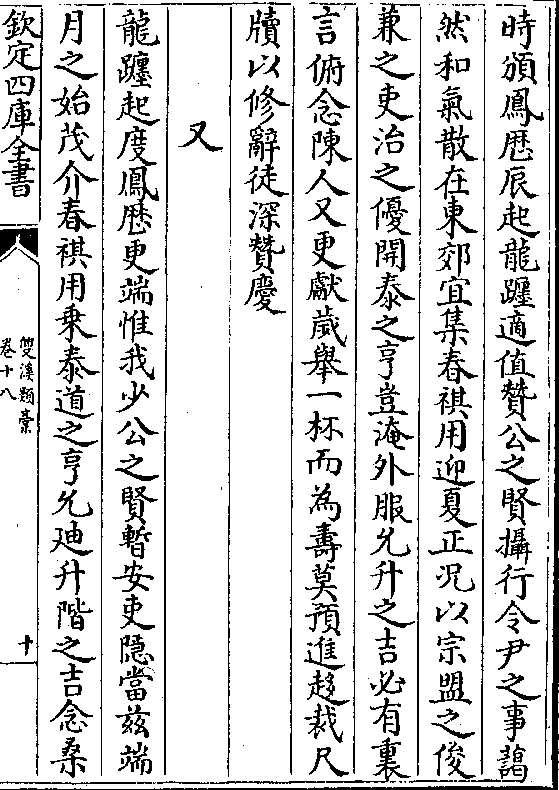 時頒鳳歴辰起龍躔適值贊公之賢攝行令尹之事藹
然和氣散在東郊宜集春祺用迎夏正况以宗盟之俊
兼之吏治之優開泰之亨豈淹外服允升之吉必有裏
言俯念陳人又更獻歲舉一杯而為壽莫預進趍裁尺
牘以修辭徒深贊慶
又
龍躔起度鳳歴更端惟我少公之賢暫安吏隠當兹端
月之始茂介春祺用乗泰道之亨允廸升階之吉念桑
欽定四庫全書
雙溪類稾
卷十八
十